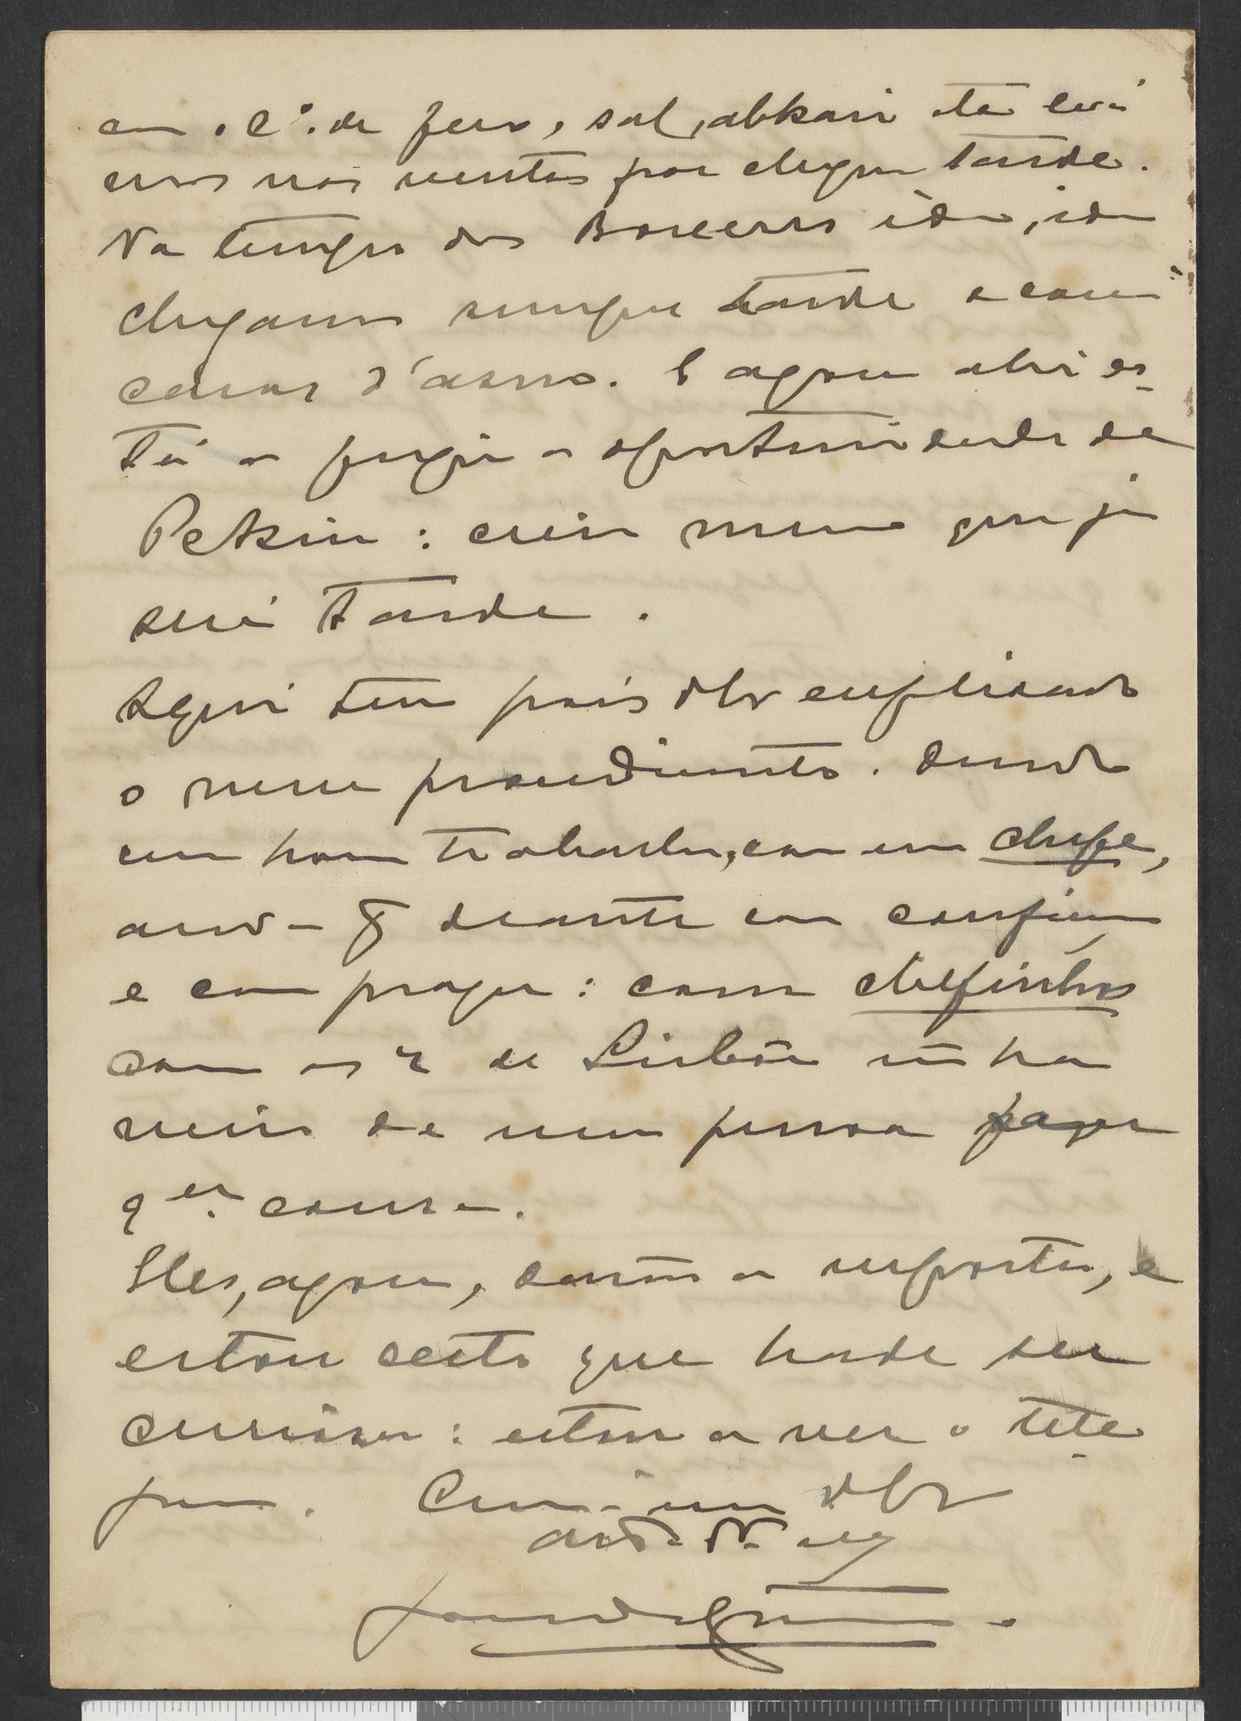 com o C.º de ferro, sal, abkari etc levá
mos nas ventas por chegar tarde.
No tempo dos Boxeers ide, ide
chegamos sempre tarde e com
caras d'asno. E agora ahi es-
tá a fugir a oportunidade de
Pekin: creia mesmo que já
será tarde.
Aqui tem pois V. explicado
o meu procedimento. Quando
um homem trabalha, com um chefe,
anda- deante com confiança
e com prazer: com chefinhos
com os de Lisboa não ha
meio de uma pessoa fazer
q.er cousa.
Elles, agora, darão a resposta, e
estou certo que hade ser
curiosa: estou a ver o tele